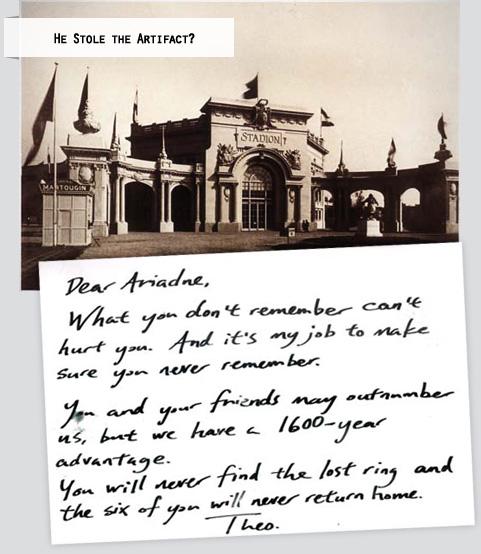 He Stole the Artifact?
STADION
MARTOUGIN
Dear Ariadne,
What you don't remember can't
hurt you. And it's my job to make
sure you never remember.
You and your friends may outnumber
us, but we have a 1600-year
advantage.
You will never find the lost ring and
the six of you will never return home.
Theo.